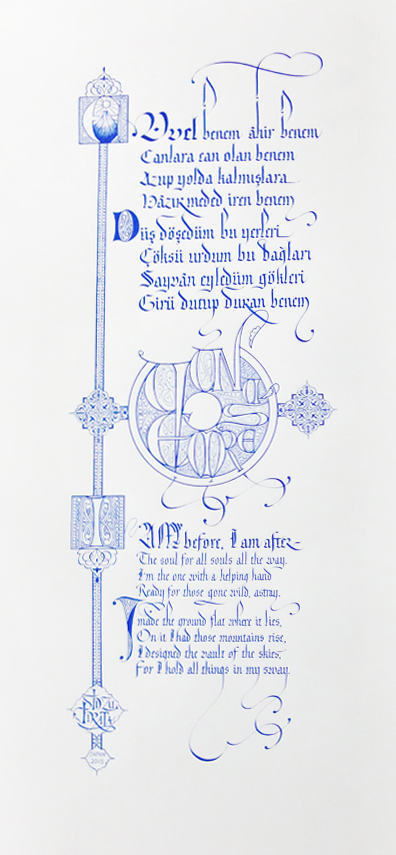 Evvel benem âhir benem
Canlara can olan benem
Azup yolda kalmışlara
Hâzır meded iren benem
Düş döşedüm bu yerleri
Çöksü urdum bu dağları
Sayvân eyledüm gökleri
Girü dutup duran benem
YUNUS
EMRE
I AM before, I am after-
The soul for all souls all the way.
I'm the one with a helping hand
Ready for those gone wild, astray.
I made the ground flat where it lies,
On it I had those mountains rise,
I designed the vault of the skies,
For I hold all things in my sway.